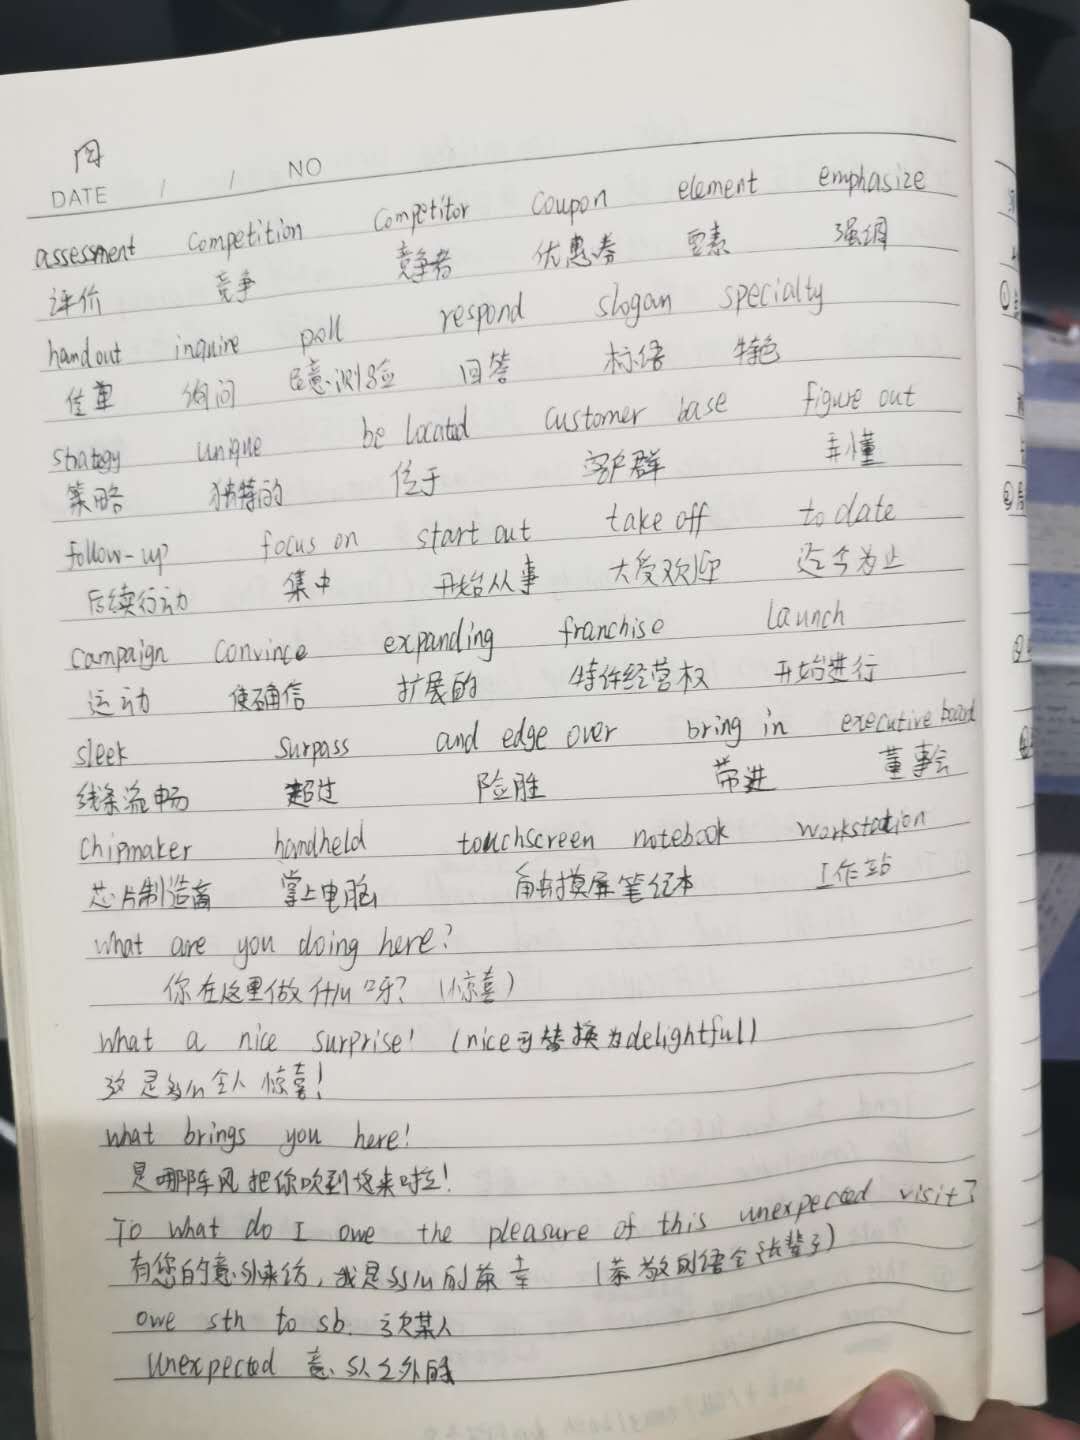 DATE / / NO
assessment competition competitor coupon element emphasize
评价 竞争 竞争者 优惠券 要素 强调
handout inquire poll respond slogan specialty
传单 询问 民意测验 回答 标语 特色
strategy unique be located customer base figure out
策略 独特的 位于 客户群 弄懂
follow-up focus on start out take off to date
后续行动 集中 开始从事 大受欢迎 迄今为止
campaign convince expanding franchise launch
运动 使确信 扩展的 特许经营权 开始进行
sleek surpass and edge over bring in executive board
线条流畅 超过 险胜 带进 董事会
chipmaker handheld touchscreen notebook workstation
芯片制造商 掌上电脑 触摸屏笔记本 工作站
what are you doing here?
你在这里做什么呀?(惊喜)
what a nice surprise! (nice可替换为delightful)
这是多么令人惊喜!
what brings you here!
是哪阵风把你吹到这来啦!
To what do I owe the pleasure of this unexpected visit?
有您的意外来访,我是多么的荣幸 (恭敬的语
owe sth to sb. 亏欠某人
unexpected 意料之外的